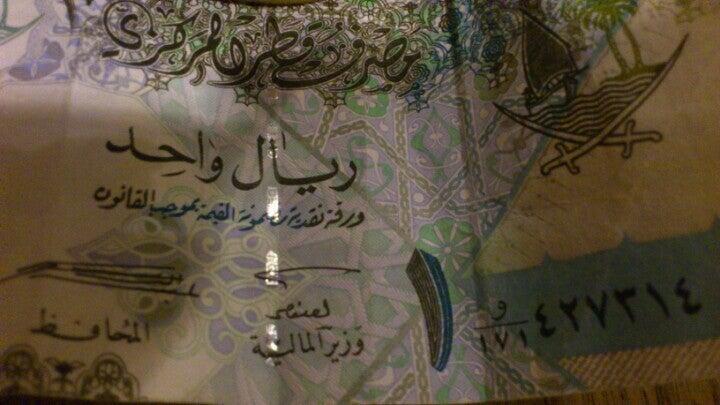 مصرف قطر المركزي
ريال واحد
ورقة نقدية مضمونة القيمة بموجب القانون
وزير المالية
المحافظ
١
و
١٧١
٤٢٧٣١٤